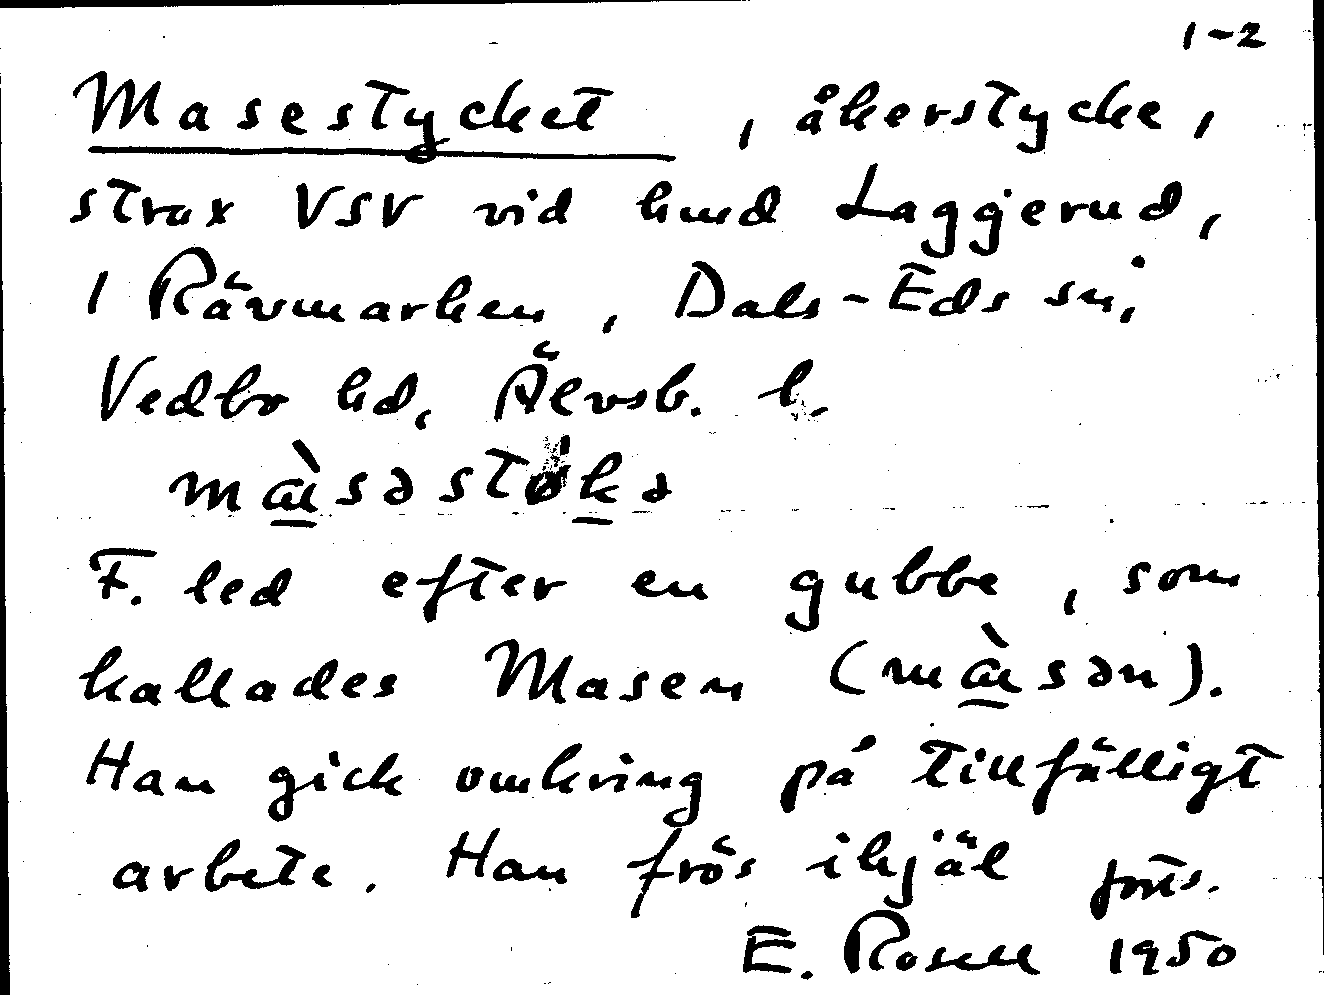 1-2
Masestycket, åkerstycke,
strax VSV vid hmd Laggerud,
i Rävmarken, Dals-Eds sn,
Vedbo hd, Älvsb. l.
mɑ̀sə støkə
F. led efter en gubbe, som
kallades Masen (mɑ̀sən).
Han gick omkring på tillfälligt
arbete. Han frös ihjäl forts.
E. Rosell 1950